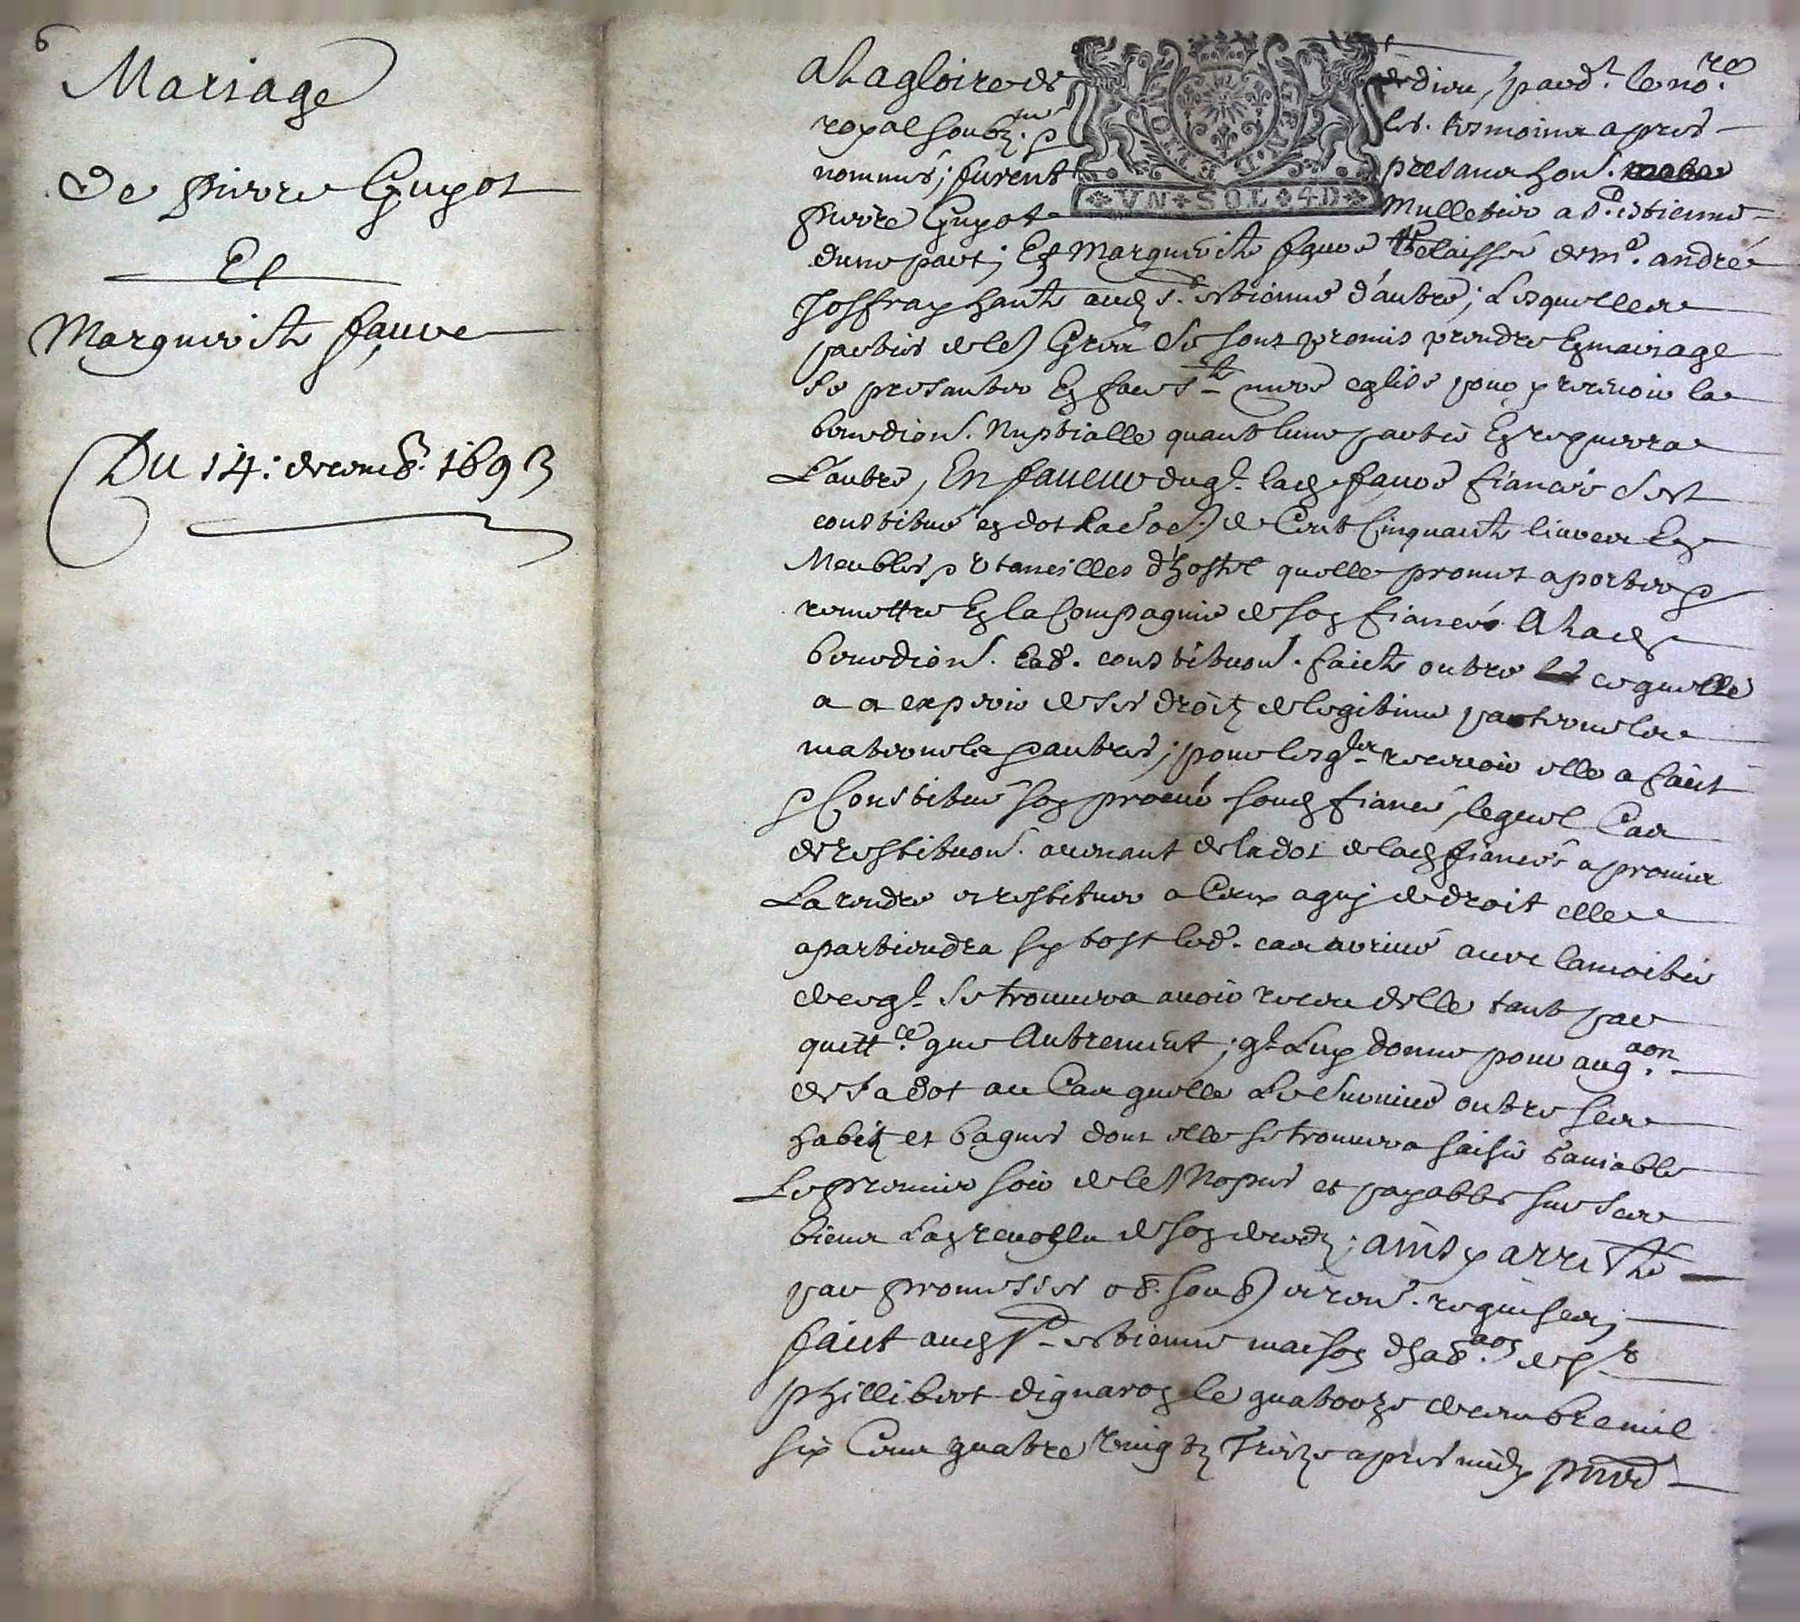 6
Mariage
De pierre Guyot
Et
Marguerite fauve
Du 14: decemb. 1693
A La gloire de dieu, pard.t le no.re
royal soubz.né & les tesmoins apres
nommés; furent presans hon.
pierre Guyot Mulletier a S.t estienne
dune part; Et Marguerite fauve delaissée de m.e andré
Joffray hante aud S.t estienne d'autre; Lesquelles
parties de le Gren se sont promis prendre En mariage
se presanter En face S.te mere eglise pour y recevoir la
benedion. Nuptialle quant lune partie En requerra
L'autre, En faveur duql. lad fauve fiancée sest
constitué en dot La so.e de Cent Cinquante livres En
Meubles & utancilles d'hostel quelle promet aporter &
remettre En la Compagnie de son fiancé A Lad
benedion. lad. constituon. faicte outre ce quelle
a a exp de ses droitz de legitime paternelle
maternelle & autres; pour lesqls. recevoir elle a fait
& Constitué son procur sond fiancé, lequel Cas
de restituon. avenant de la dot de lad fiancée a promis
La rendre et restituer a Ceux a quj de droit elle
apartiendra sy tost led. cas arrivé avec la moitie
de ce ql. se trouvera avoir receu delle tant par
quitt.ce que Autrement; ql. Luy donne pour aug.aon
de sa dot au Cas quelle Le Survive outre ses
habitz et bagues dont elle se trouvera saisie
Le premier soir de le Nopces et payable sur ses
biens de son deceds; ainsy arresté
par promesses ob. soub et renon. requises;
fait aud S.t estienne maison d'hab.aon de s.r
phillibert dignaron le quatorze decembre mil
six Cens quatre vingtz Treize apres midy